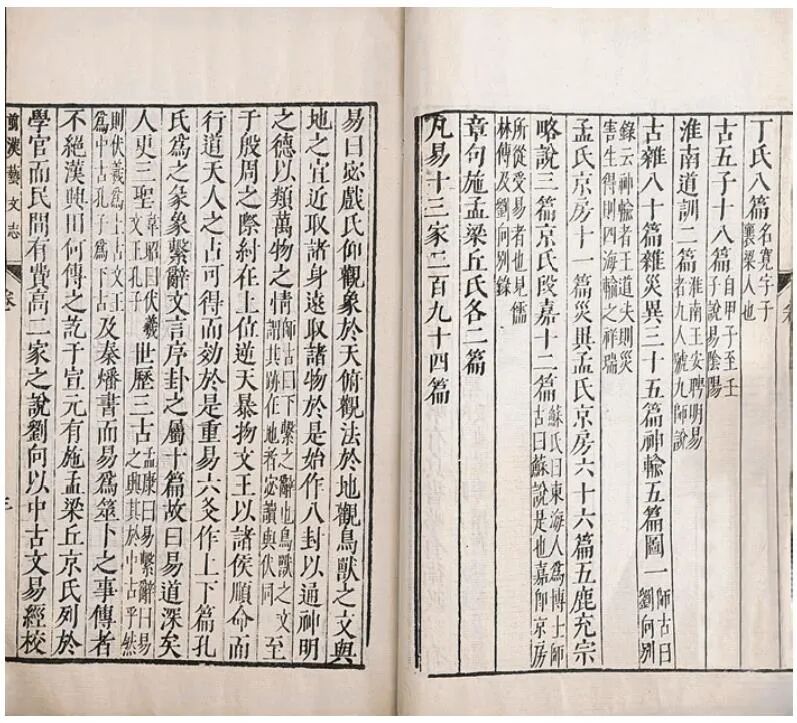 丁氏八篇名寬字子襄梁人也
古五子十八篇自甲子至壬子說易陰陽
淮南道訓二篇淮南王安聘明易者九人號九師說
古雜八十篇雜災異三十五篇神輸五篇圖一師古曰劉向別
錄云神輸者王道失則災害生得則四海輸之祥瑞
孟氏京房十一篇災異孟氏京房六十六篇五鹿充宗
略說三篇京氏段嘉十二篇蘇氏曰東海人爲博士師古曰蘇說是也嘉卽京房
所從受易者也見儒林傳及劉向別錄
章句施孟梁丘氏各二篇
凡易十三家二百九十四篇
易曰宓戲氏仰觀象於天俯觀法於地觀鳥獸之文與
地之宜近取諸身遠取諸物於是始作八封以通神明
之德以類萬物之情師古曰下繫之辭也鳥獸之文謂其跡在地者宓讀與伏同至
于殷周之際紂在上位逆天暴物文王以諸侯順命而
行道天人之占可得而効於是重易六爻作上下篇孔
氏爲之彖象繫辭文言序卦之屬十篇故曰易道深矣
人更三聖韋昭曰伏羲文王孔子世歷三古孟康曰易繫辭曰易之興其於中古乎然
則伏羲爲上古文王爲中古孔子爲下古及秦燔書而易爲筮卜之事傳者
不絕漢興田何傳之訖于宣元有施孟梁丘京氏列於
學官而民間有費高二家之說劉向以中古文易經校
前漢藝文志 卷